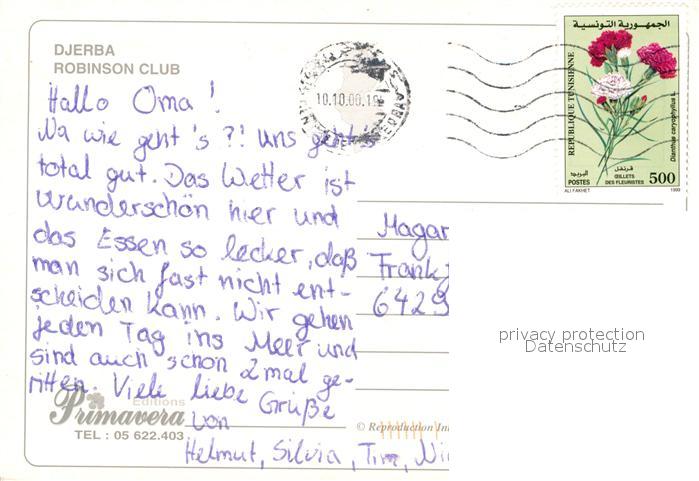 DJERBA
ROBINSON CLUB
Hallo Oma!
Na wie geht's?! Uns geht's
total gut. Das Wetter ist
wunderschön hier und
das Essen so lecker, daß
man sich fast nicht ent-
scheiden kann. Wir gehen
jeden Tag ins Meer und
sind auch schon 2mal ge-
ritten. Viele liebe Grüße
von
Helmut, Silvia, Tim, Ni
Editions
Primavera
TEL : 05 622.403
© Reproduction In
10.10.00.19
الجمهورية التونسية
REPUBLIQUE TUNISIENNE
Dianthus caryophyllus L.
قرنفل
البريد
POSTES
ŒILLETS
DES FLEURISTES
500
ALI FAKHET
1999
Magar
Frank
6429
privacy protection
Datenschutz